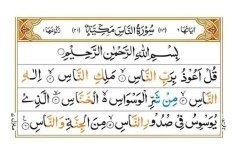 سُوْرَةُ النَّاسِ مَكِّيَّةٌ
بِسْمِ اللهِ الرَّحْمٰنِ الرَّحِيْمِ
قُلْ اَعُوْذُ بِرَبِّ النَّاسِ ۙ مَلِكِ النَّاسِ ۙ اِلٰهِ
النَّاسِ ۙ مِنْ شَرِّ الْوَسْوَاسِ ۙ الْخَنَّاسِ ۙ الَّذِيْ
يُوَسْوِسُ فِيْ صُدُوْرِ النَّاسِ ۙ مِنَ الْجِنَّةِ وَالنَّاسِ